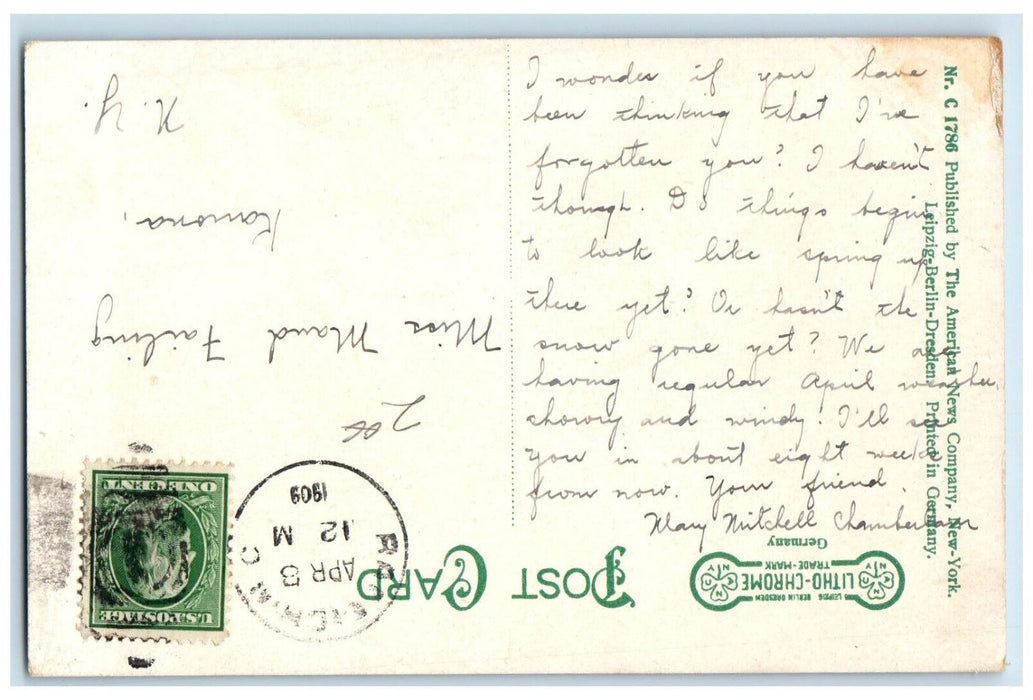 I wonder if you have
been thinking that I've
forgotten you? I haven't
though. Do things begin
to look like spring up
there yet? Or hasn't the
snow gone yet? We are
having regular April weather,
showry and windy. I'll see
you in about eight weeks
from now. Your friend.
Mary Mitchell Chamberlain
Nr. C 1786 Published by The American News Company, New-York.
Leipzig-Berlin-Dresden. Printed in Germany.
POST CARD
LITHO-CHROME
TRADE-MARK
LEIPZIG BERLIN DRESDEN
Germany
U.S. POSTAGE
ONE CENT
APR 8
12 M
1909
Miss Maud Failing
Ramona,
N.Y.